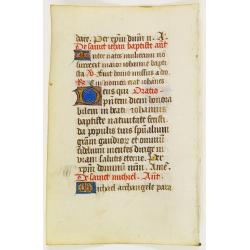 dare. Per xpm dnm n. A.
De sanct iehan baptiste ant
Inter natos mulierum nō
surrexit maior iohanne bapti
sta V. Fuit homo missus a do
R. cui nomen erat iohanes
Deus qui Oratio
pntem diem honora
bilem in beati iohannis
baptiste natiuitate fecisti
da populis tuis spūalium
gratiam gaudior et omniū
fidelium mentes dirige in
viam salutis eterne. Per
xpm dnm n. Amē.
De sanct michiel. Ant.
Michael archangele para